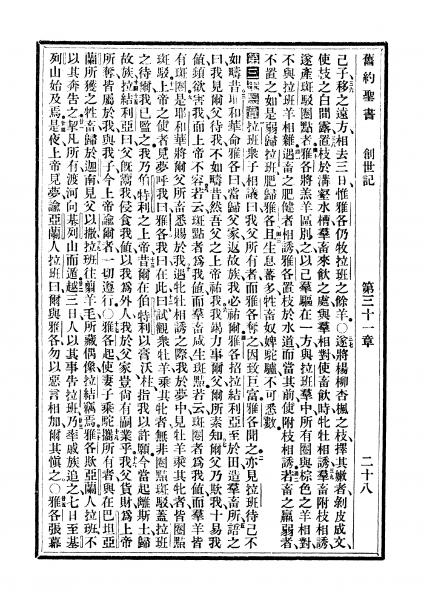 舊約聖書 創世記 第三十一章 二十八
己子移之遠方相去三日惟雅各仍牧拉班之餘羊〇遂將楊柳杏楓之枝擇其嫩者剝皮成文
使枝之白間露置枝於溝壑水槽羣畜來飲之處與羣相對使畜飲時牝牡相誘羣畜附枝相誘
遂產斑駁圈點者雅各將羔羊區別之以己羣驅在一方與拉班羣中所有圈與棕色之羊相對
不與拉班羊相雜遇畜之肥健者相誘雅各置枝於水道而當其前使附枝相誘若畜之羸弱者
不置之如是弱歸拉班肥歸雅各且生息蕃多牲畜奴婢駝驢不可悉數
拉班衆子相議曰我父所有者而雅各奪之因致巨富雅各聞之亦見拉班待己不
如疇昔耶和華命雅各曰當歸父家返故族我必祐爾雅各招拉結利亞至於田造羣畜所語之
曰我見爾父待我不如疇昔然吾父之上帝祐我我竭力事爾父爾所素知爾父乃欺我十易我
値頻欲害我而上帝不容若云斑點者爲我値而羣畜咸生斑點若云斑圈者爲我値而羣羊皆
有斑圈是耶和華將爾父所畜悉賜於我遇牝牡相誘之際我於夢中見牡羊乘其牝者皆圈點
斑駁上帝之使者見夢呼我曰雅各我曰在此曰試觀衆牡羊乘其牝者無非圈點斑駁蓋拉班
之待爾我已鑒之我乃伯特利之上帝昔爾在伯特利以膏沃柱指我以許願今當起離斯土歸
故族拉結利亞曰父旣鬻我侵食我値以我爲外人我於父家豈尚有嗣業乎我父貨財爲上帝
所奪皆屬於我與我子今上帝諭爾者一切遵行〇雅各起使妻子乘駝攜所有者與在巴坦亞
蘭所獲之牲畜歸於迦南見父以撒拉班往翦羊毛所藏偶像拉結竊焉雅各欺亞蘭人拉班不
以其奔告之挈凡所有渡河向基列山而遁越三日人以其事告拉班乃率戚族追之七日至基
列山始及焉是夜上帝見夢諭亞蘭人拉班曰爾與雅各勿以惡言相加爾其愼之〇雅各張幕